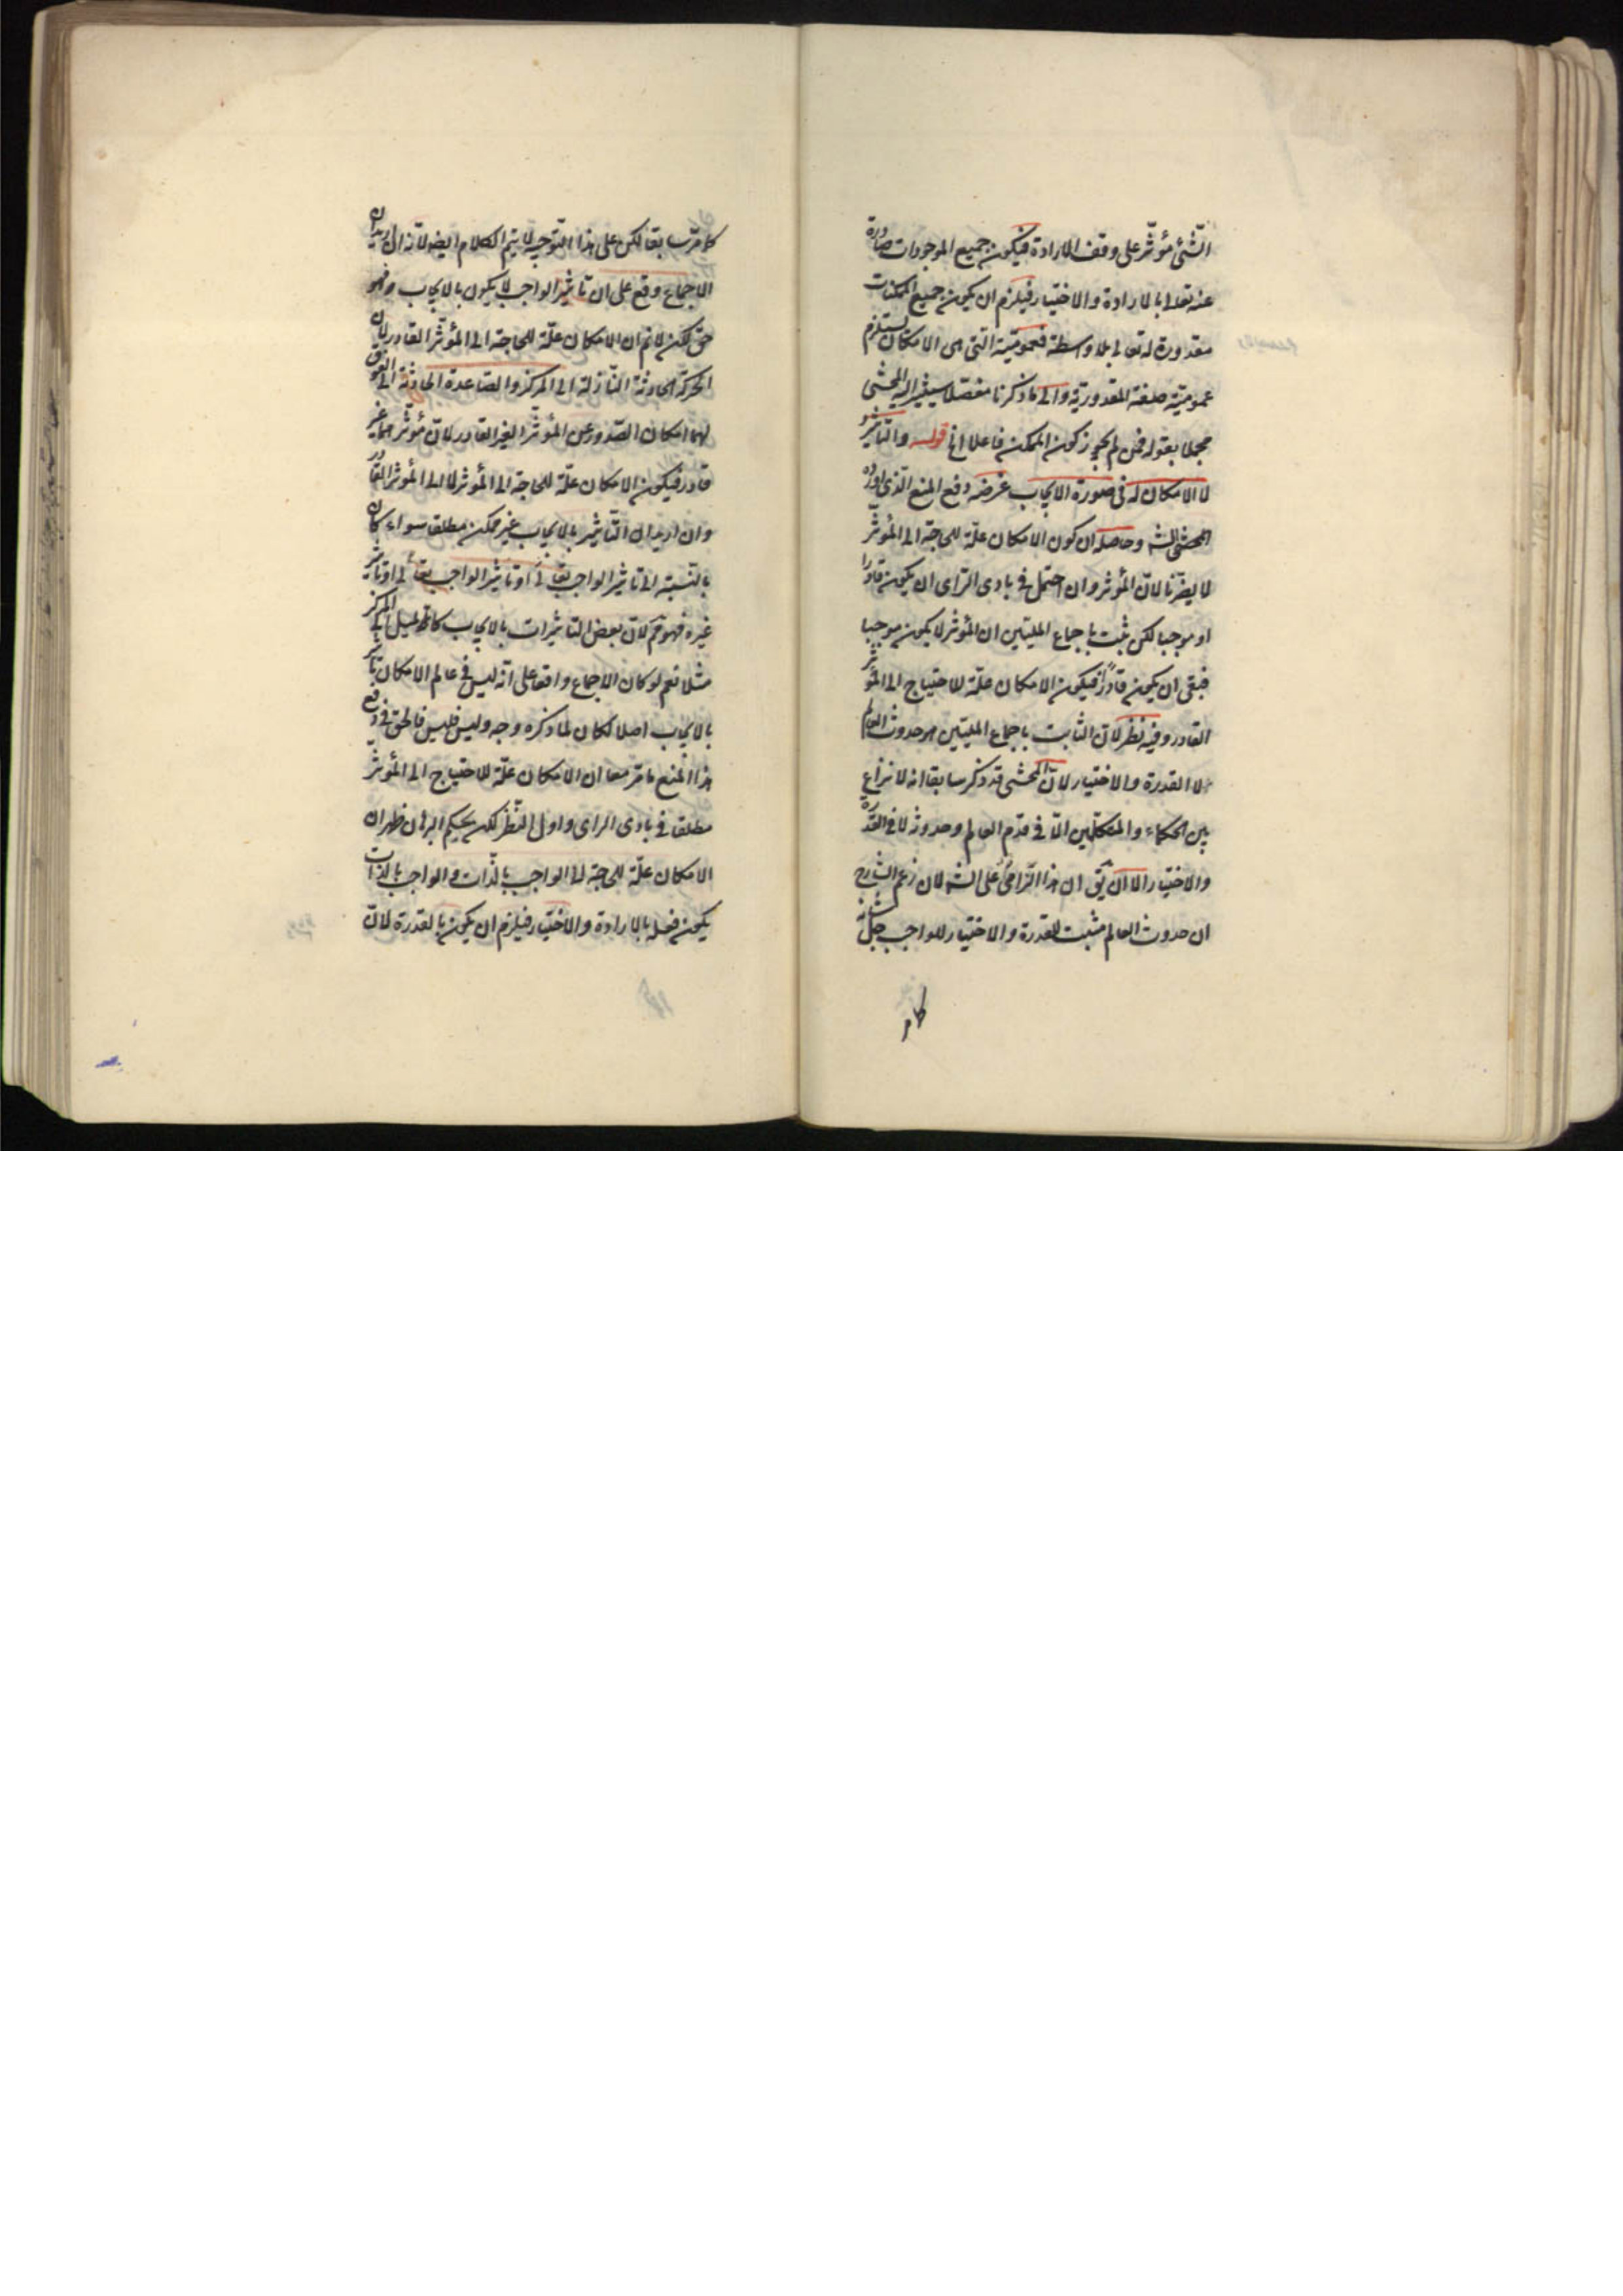 الشئ مؤثر على وفق الارادة فيكون جميع الموجودات صادرة
عنه تعالى بالارادة والاختيار فيلزم ان يكون جميع الممكنات
مقدورة له تعالى بلا واسطة فعمومية التى هى الامكان يستلزم
عمومية صفة المقدورية والى ما ذكرنا مفصلا سيشير اليه المحشى
مجملا بقوله فمن لم يجوز كون الممكن فاعلا الخ قوله والتاثير
لا امكان له فى صورة الايجاب غرضه دفع المنع الذى اورده
المحشى الشه وحاصله ان كون الامكان علة للحاجة الى المؤثر
لا يضرنا لان المؤثر وان احتمل فى بادى الراى ان يكون قادرا
او موجبا لكن ثبت باجماع المليين ان المؤثر لا يكون موجبا
فبقى ان يكون قادرا فيكون الامكان علة للاحتياج الى المؤثر
القادر وفيه نظر لان الثابت باجماع المليين هو حدوث العالم
لا القدرة والاختيار لان المحشى قد ذكر سابقا انه لا نزاع
بين الحكماء والمتكلمين الا فى قدم العالم وحدوثه لا فى القدرة
والاختيار الا ان يق ان هذا الزامى على الشه لان زعم الشارح
ان حدوث العالم مثبت للقدرة والاختيار للواجب جل شانه
كامر
كامر سابقا لكن على هذا التوجيه لا يتم الكلام ايضه لانه ان اريد ان
الاجماع وقع على ان تاثير الواجب لا يكون بالايجاب فهو
حق لكن لانم ان الامكان علة للحاجة الى المؤثر القادر لان
الحركة الحادثة النازلة الى المركز والصاعدة الحادثة الى الفوق
لهما امكان الصدور عن المؤثر الغير القادر لان مؤثرهما غير
قادر فيكون الامكان علة للحاجة الى المؤثر لا الى المؤثر القادر
وان اريد ان التاثير بالايجاب غير ممكن مطلقا سواء كان
بالنسبة الى تاثير الواجب تعالى او تاثير
غيره فهو مم لان بعض التاثيرات بالايجاب كالميل الى المركز
مثلا نعم لو كان الاجماع واقعا على انه ليس فى عالم الامكان تاثير
بالايجاب اصلا لكان لما ذكره وجه وليس فليس فالحق فى دفع
هذا المنع ما مر منا ان الامكان علة للاحتياج الى المؤثر
مطلقا فى بادى الراى واول النظر لكن بحكم البرهان ظهر ان
الامكان علة للحاجة الى الواجب بالذات والواجب بالذات
يكون فعله بالارادة والاختيار فيلزم ان يكون بالقدرة لان